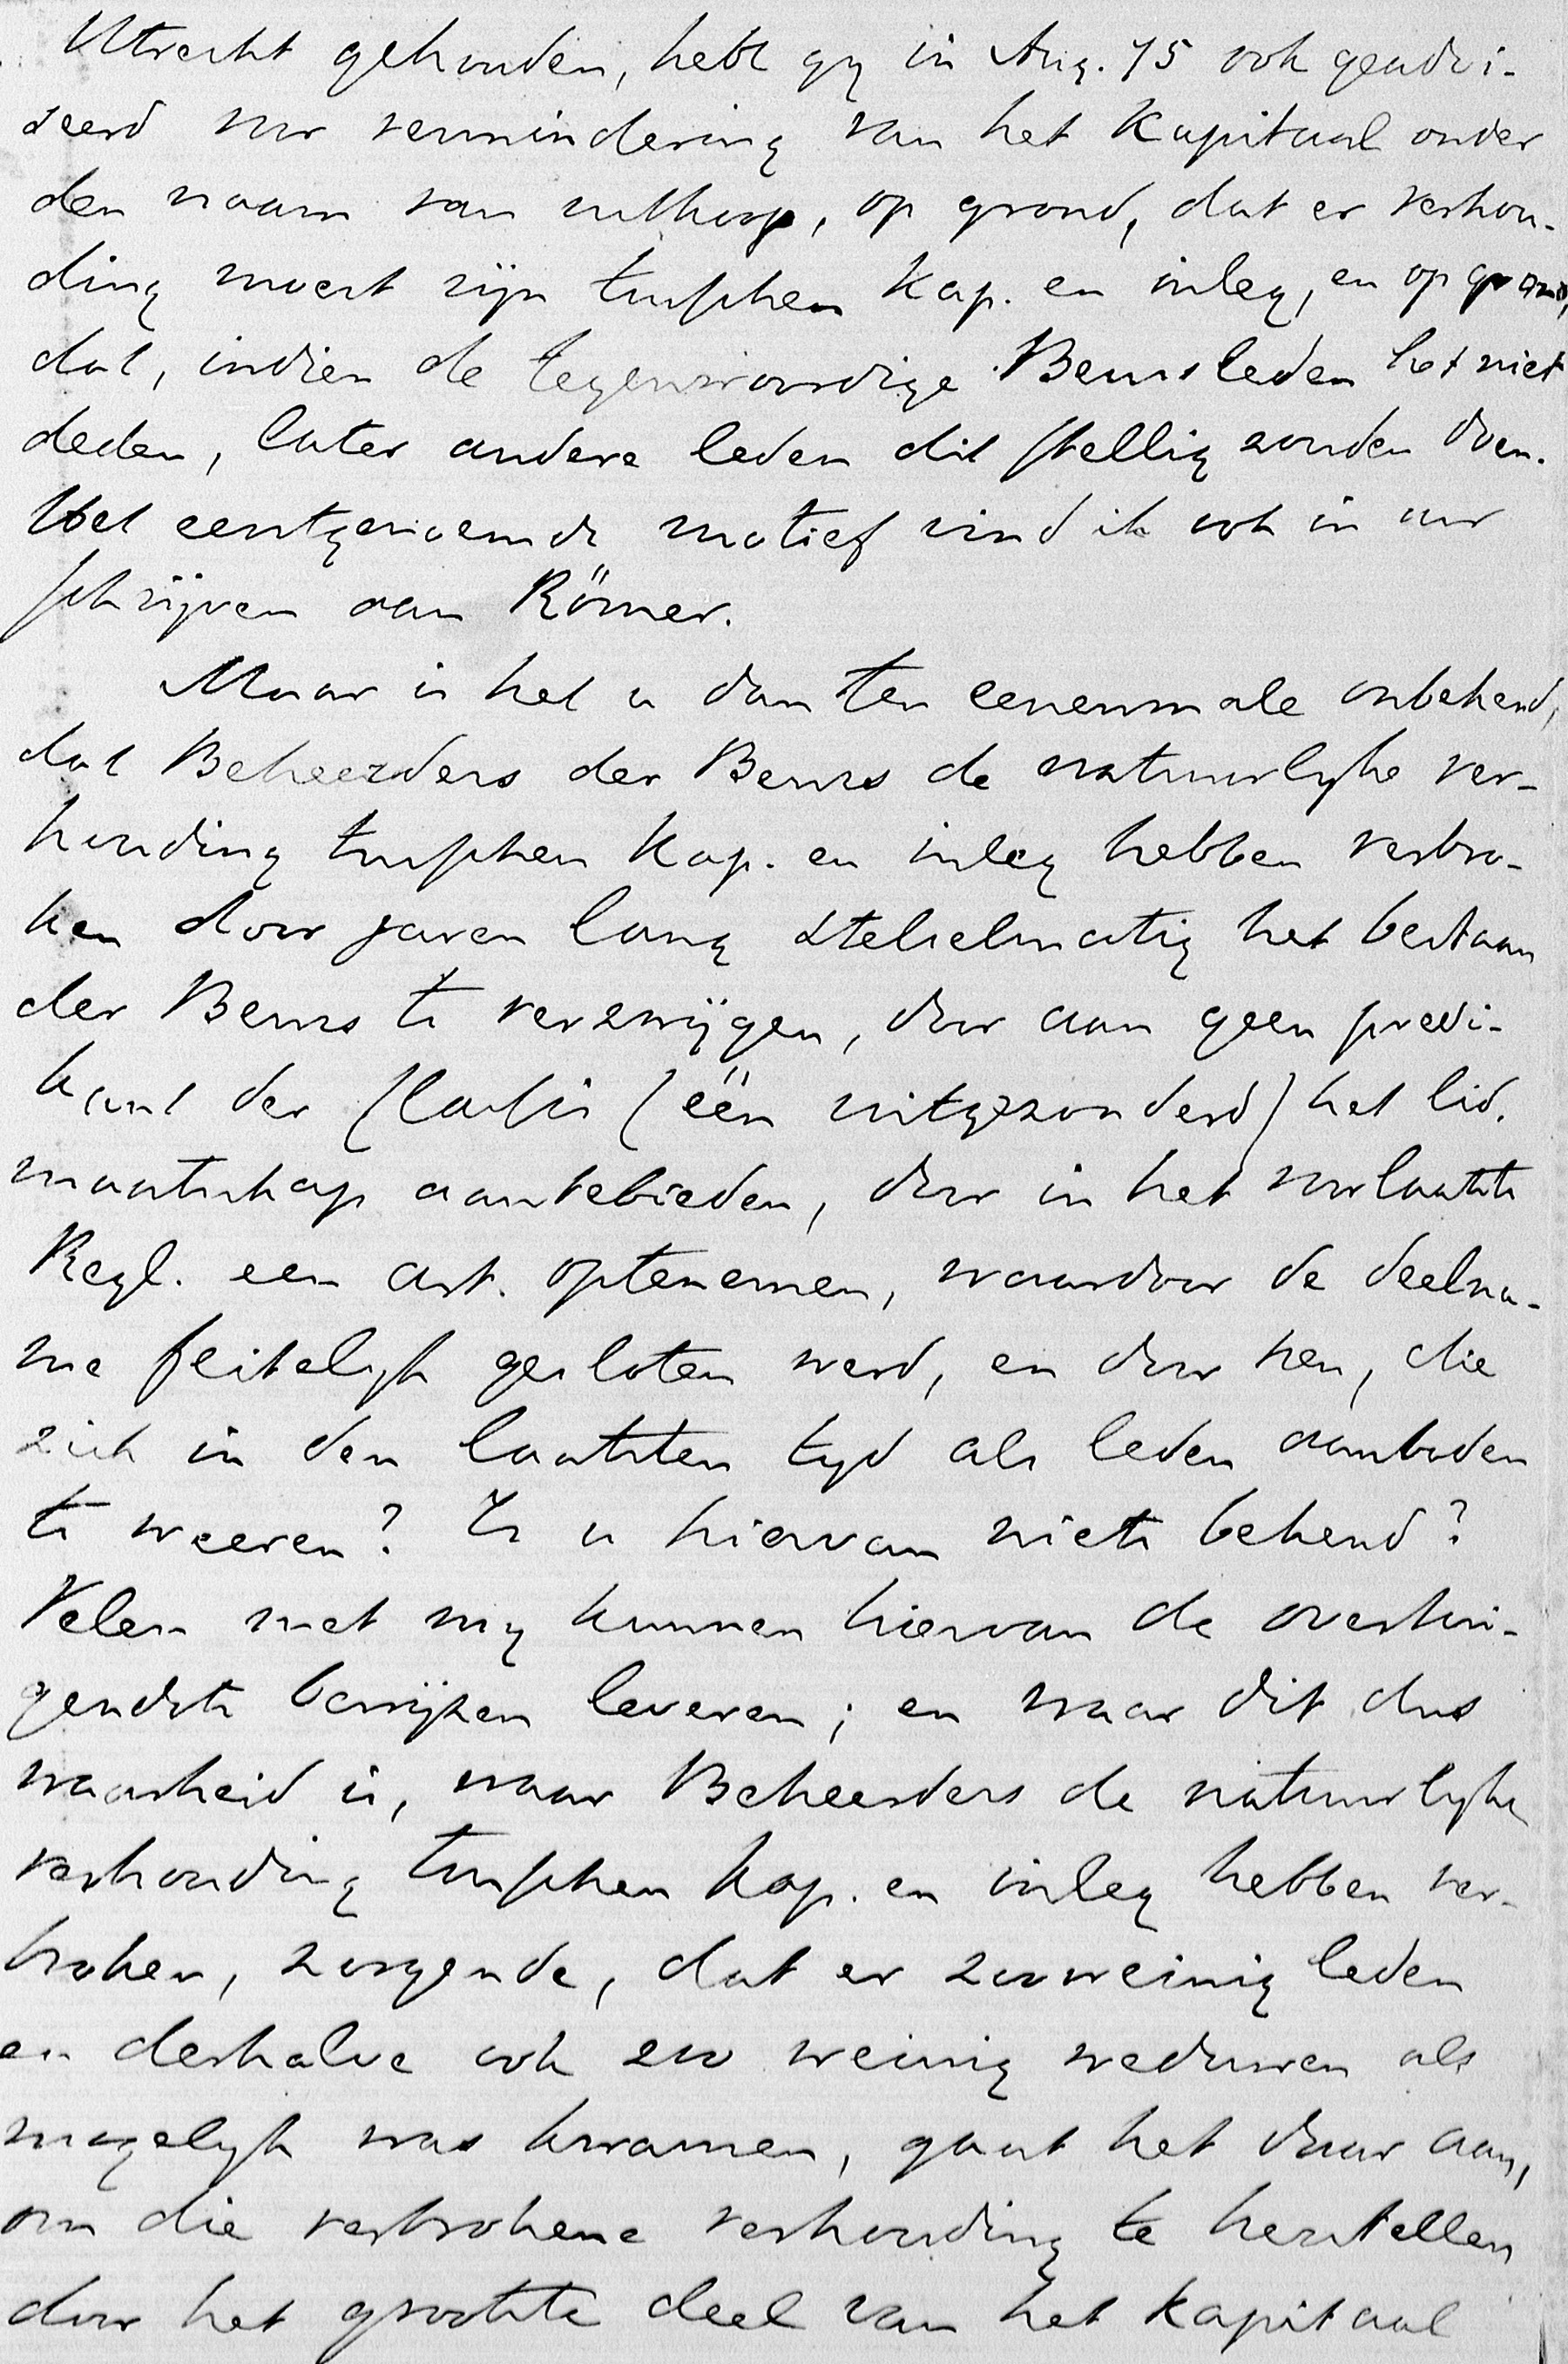 Utrecht gehouden, hebt gy in Aug. 75 ook geadvi-
seerd voor vermindering van het Kapitaal onder
den naam van uitkoop, op grond, dat er verhou-
ding moest zijn tusschen Kap. en inleg, en op grond,
dat, indien de tegenwoordige Beursleden het niet
deden, later andere leden dit stellig zouden doen.
Het eerstgenoemde motief vind ik ook in uw
schrijven aan Römer.
Maar is het u dan ten eenenmale onbekend,
dat Beheerders der Beurs de natuurlyke ver-
houding tusschen Kap. en inleg hebben verbro-
ken door jaren lang stelselmatig het bestaan
der Beurs te verzwijgen, door aan geen predi-
kant der Classis (één uitgezonderd) het lid-
maatschap aantebieden, door in het voorlaatste
Regl. een art. optenemen, waardoor de deelna-
me feitelyk gesloten werd, en door hen, die
zich in den laatsten tyd als leden aanboden
te weeren? Is u hiervan niets bekend?
Velen met my kunnen hiervan de overtui-
gendste bewijzen leveren; en waar dit dus
waarheid is, waar Beheerders de natuurlyke
verhouding tusschen Kap. en inleg hebben ver-
broken, zorgende, dat er zooweinig leden
en derhalve ook zoo weinig weduwen als
mogelyk was kwamen, gaat het daar aan,
om die verbrokene verhouding te herstellen
door het grootste deel van het kapitaal